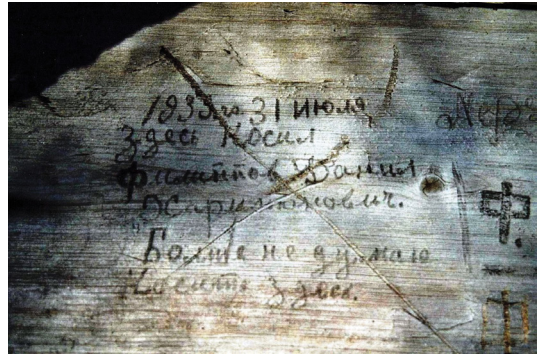 1935 го 31 июля
здесь Косил
Филипов Данил
Харитонович.
Больше не думаю
Косить здесь.
Ф.